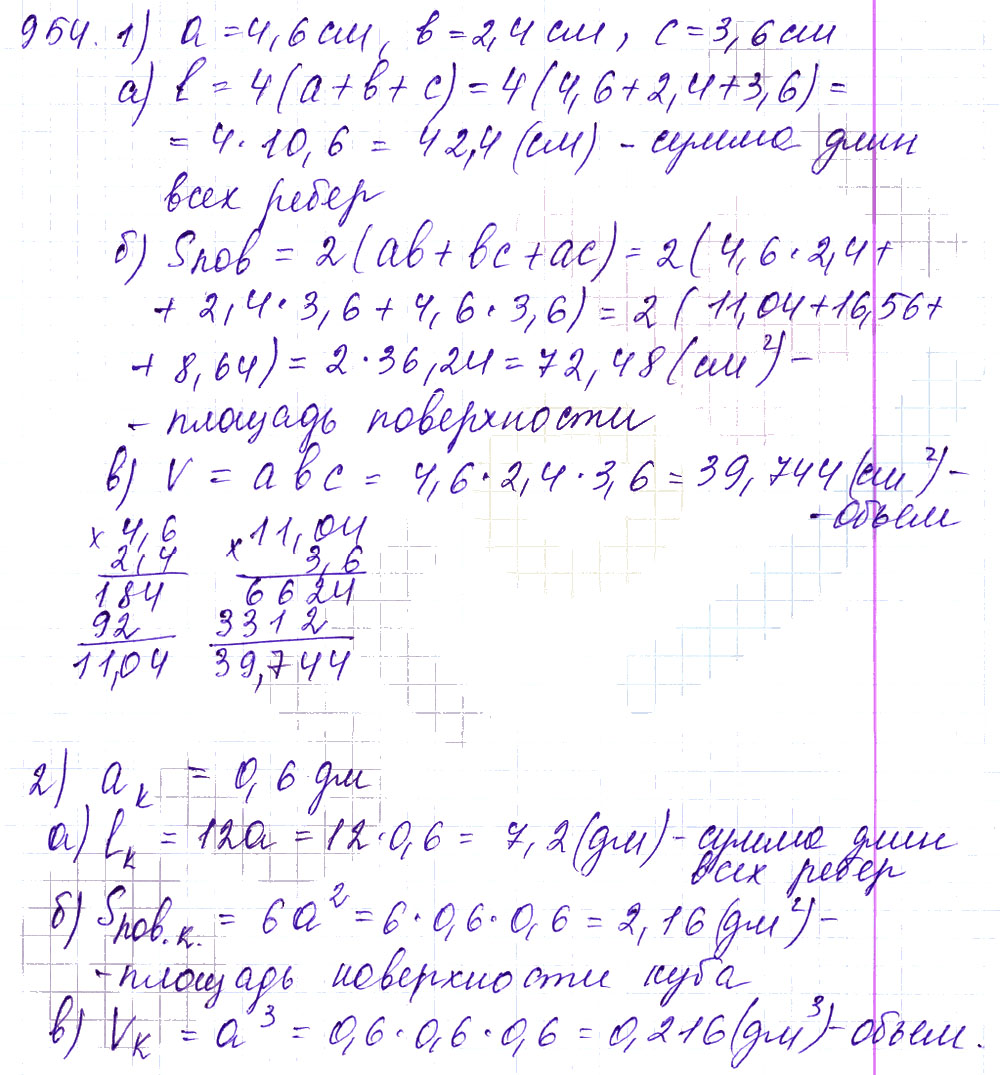 954. 1) a = 4,6 см, в = 2,4 см, с = 3,6 см
а) ℓ = 4(а + в + с) = 4(4,6 + 2,4 + 3,6) =
= 4 · 10,6 = 42,4 (см) - сумма длин
всех ребер
б) Sпов = 2(ав + вс + ас) = 2(4,6 · 2,4 +
+ 2,4 · 3,6 + 4,6 · 3,6) = 2(11,04 + 16,56 +
+ 8,64) = 2 · 36,24 = 72,48 (см²) -
- площадь поверхности
в) V = а в с = 4,6 · 2,4 · 3,6 = 39,744 (см²) -
- объем
× 4,6
2,4
184
92
11,04
× 11,04
3,6
6624
3312
39,744
2) aк = 0,6 дм
а) ℓк = 12а = 12 · 0,6 = 7,2 (дм) - сумма длин
всех ребер
б) Sпов.к. = 6а² = 6 · 0,6 · 0,6 = 2,16 (дм²) -
- площадь поверхности куба
в) Vк = а³ = 0,6 · 0,6 · 0,6 = 0,216 (дм³) - объем.